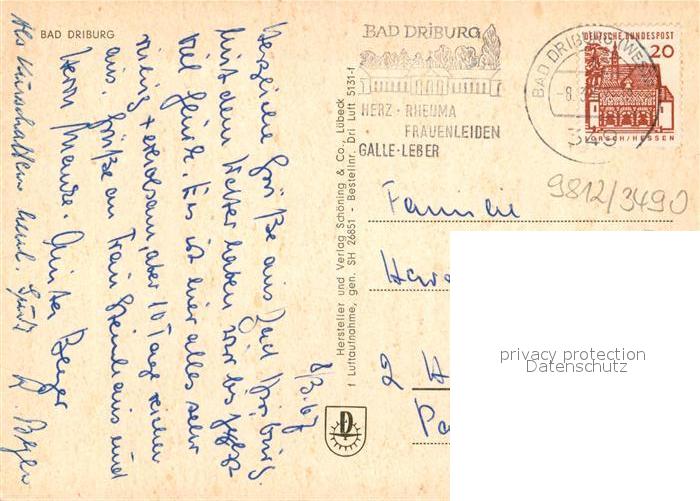 BAD DRIBURG
8/3.67
Herzliche Grüße aus Bad Driburg.
Mit dem Wetter haben wir bis jetzt
viel Glück. Es ist hier alles sehr
ruhig + erholsam, aber 10 Tage reichen
aus. Grüße an Frau Steinhaus und
Herrn Manze. Günter Berger
Als Kurschatten herzl. Grüße
Hersteller und Verlag Schöning & Co., Lübeck
† Luftaufnahme, gen. SH 26851 - Bestellnr. Dri Luft 5131-f
BAD DRIBURG
HERZ · RHEUMA
FRAUENLEIDEN
GALLE·LEBER
BAD DRIBURG
-8.3
DEUTSCHE BUNDESPOST
20
LORSCH/HESSEN
9812/3490
Familie
2 H
privacy protection
Datenschutz
D